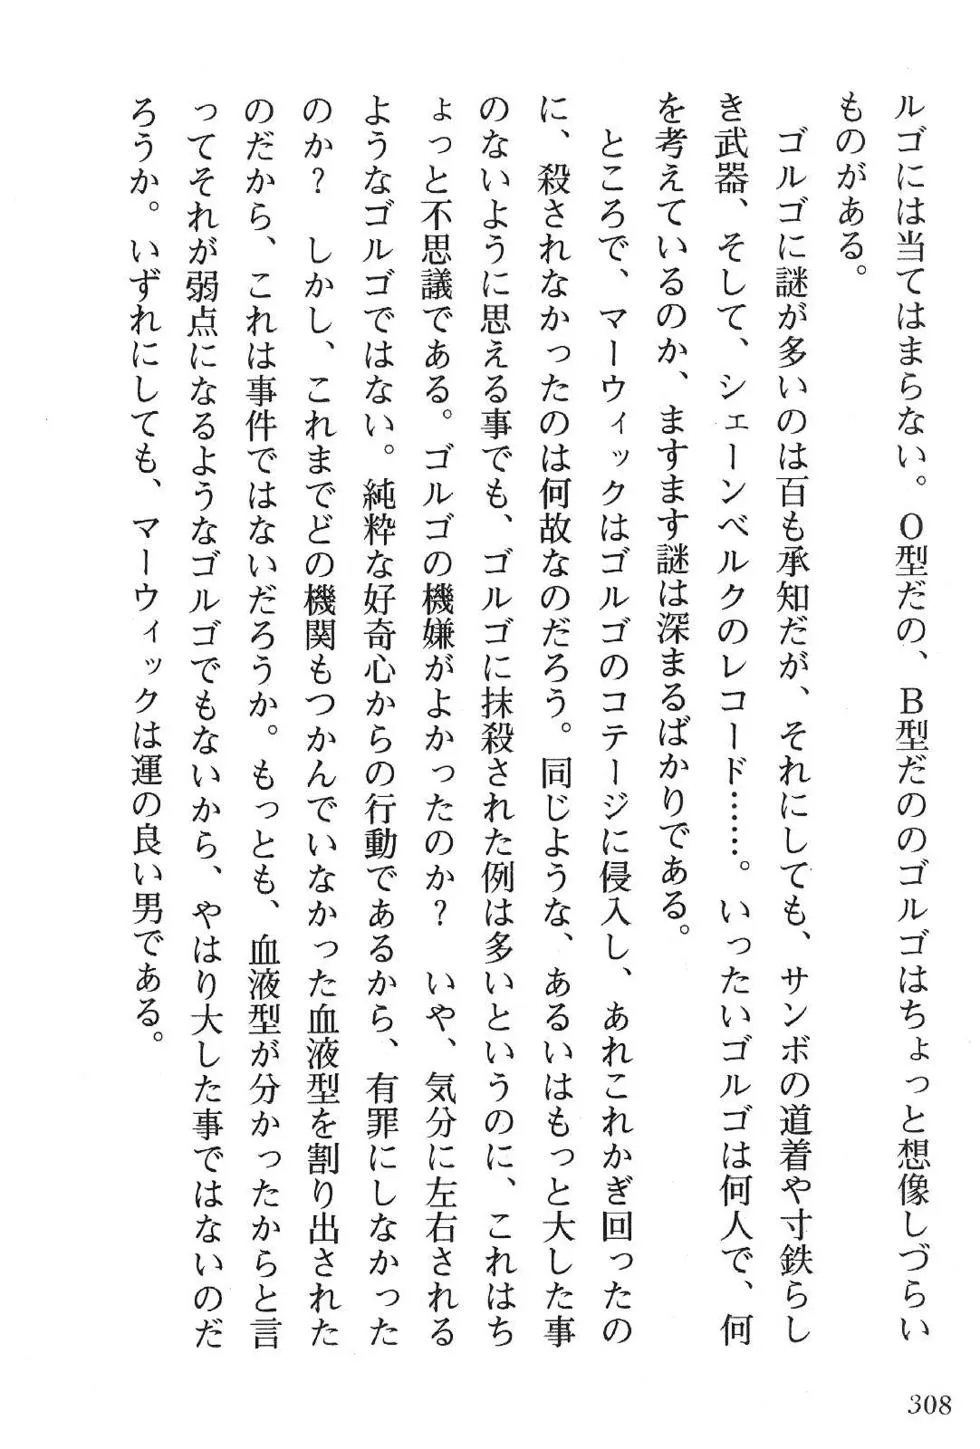 ルゴには当てはまらない。O型だの、B型だののゴルゴはちょっと想像しづらい
ものがある。
　ゴルゴに謎が多いのは百も承知だが、それにしても、サンボの道着や寸鉄らし
き武器、そして、シェーンベルクのレコード……。いったいゴルゴは何人で、何
を考えているのか、ますます謎は深まるばかりである。
　ところで、マーウィックはゴルゴのコテージに侵入し、あれこれかぎ回ったの
に、殺されなかったのは何故なのだろう。同じような、あるいはもっと大した事
のないように思える事でも、ゴルゴに抹殺された例は多いというのに、これはち
ょっと不思議である。ゴルゴの機嫌がよかったのか？　いや、気分に左右される
ようなゴルゴではない。純粋な好奇心からの行動であるから、有罪にしなかった
のか？　しかし、これまでどの機関もつかんでいなかった血液型を割り出された
のだから、これは事件ではないだろうか。もっとも、血液型が分かったからと言
ってそれが弱点になるようなゴルゴでもないから、やはり大した事ではないのだ
ろうか。いずれにしても、マーウィックは運の良い男である。
308